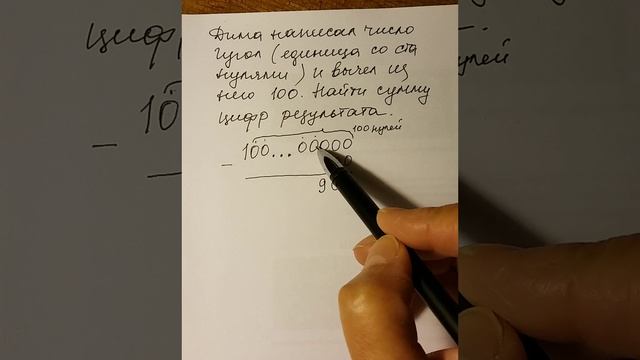 Дима написал число
гугол (единица со ста
нулями) и вычел из
него 100. Найти сумму
цифр результата.
100 нулей
100...00000
–
0
9